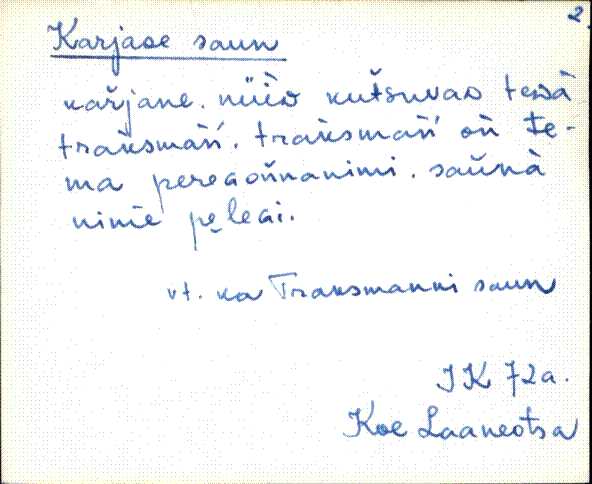 2.
Karjase saun
kaŕjane. nüiD kutsuvaD teᴅà
traksmań. traksmań oń te-
ma pereGoǹnanimi. saùnà
nimè pe̮leGi.
vt. ka Traksmanni saun
JK 72a.
Koe Laaneotsa